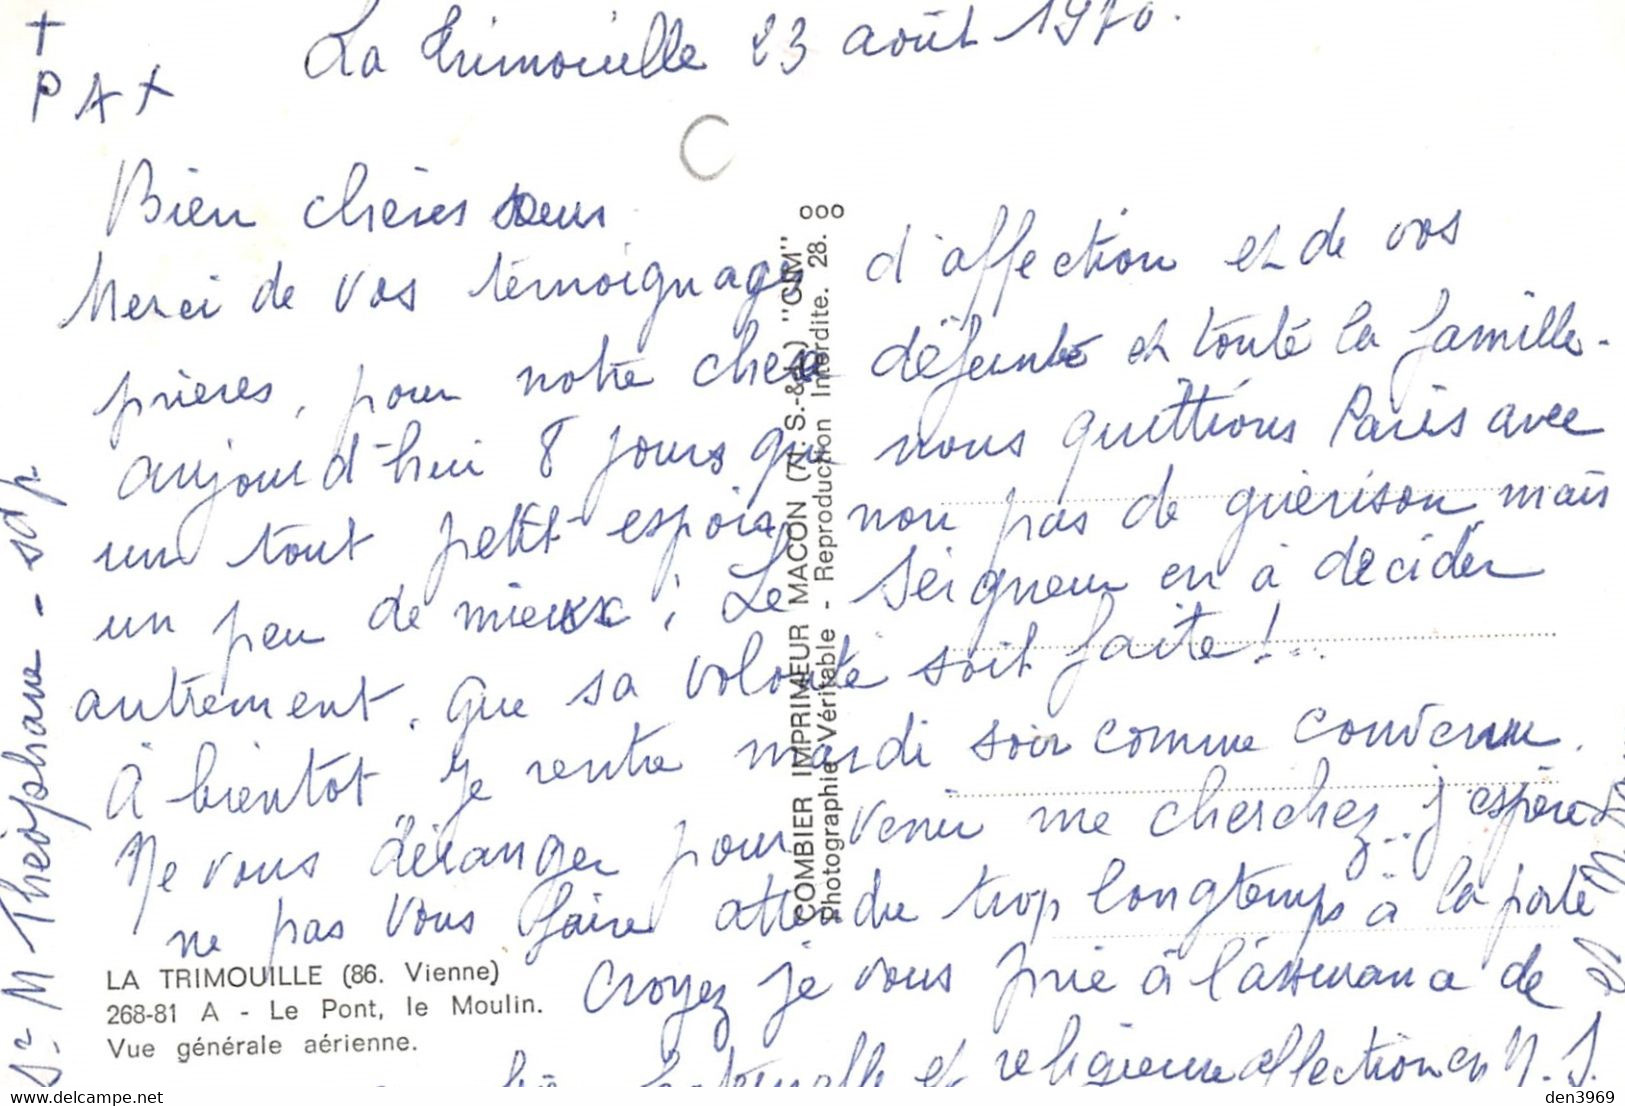 +
PAX
La Trimouille 23 août 1970.
C
Bien chères sœurs
Merci de vos témoignages d'affection et de vos
prières, pour notre chère défunte et toute la famille.
aujourd'hui 8 jours que nous quittions Paris avec
un tout petit espoir, non pas de guérison mais
un peu de mieux ; Le Seigneur en à décidér
autrement. Que sa volonté soit faite !..
À bientôt je rentre mardi soir comme convenu.
Ne vous déranger pour venir me cherchez.. j'espère
ne pas vous faire attendre trop longtemps à la porte
Croyez je vous prie à l'assurance de
et religieuse affection en N. S.
Sr M Théophane - sdp
LA TRIMOUILLE (86. Vienne)
268-81 A - Le Pont, le Moulin.
Vue générale aérienne.
COMBIER IMPRIMEUR MACON (71. S.-&-L.) "CIM"
Photographie Véritable - Reproduction Interdite. 28. ooo
delcampe.net
den3969